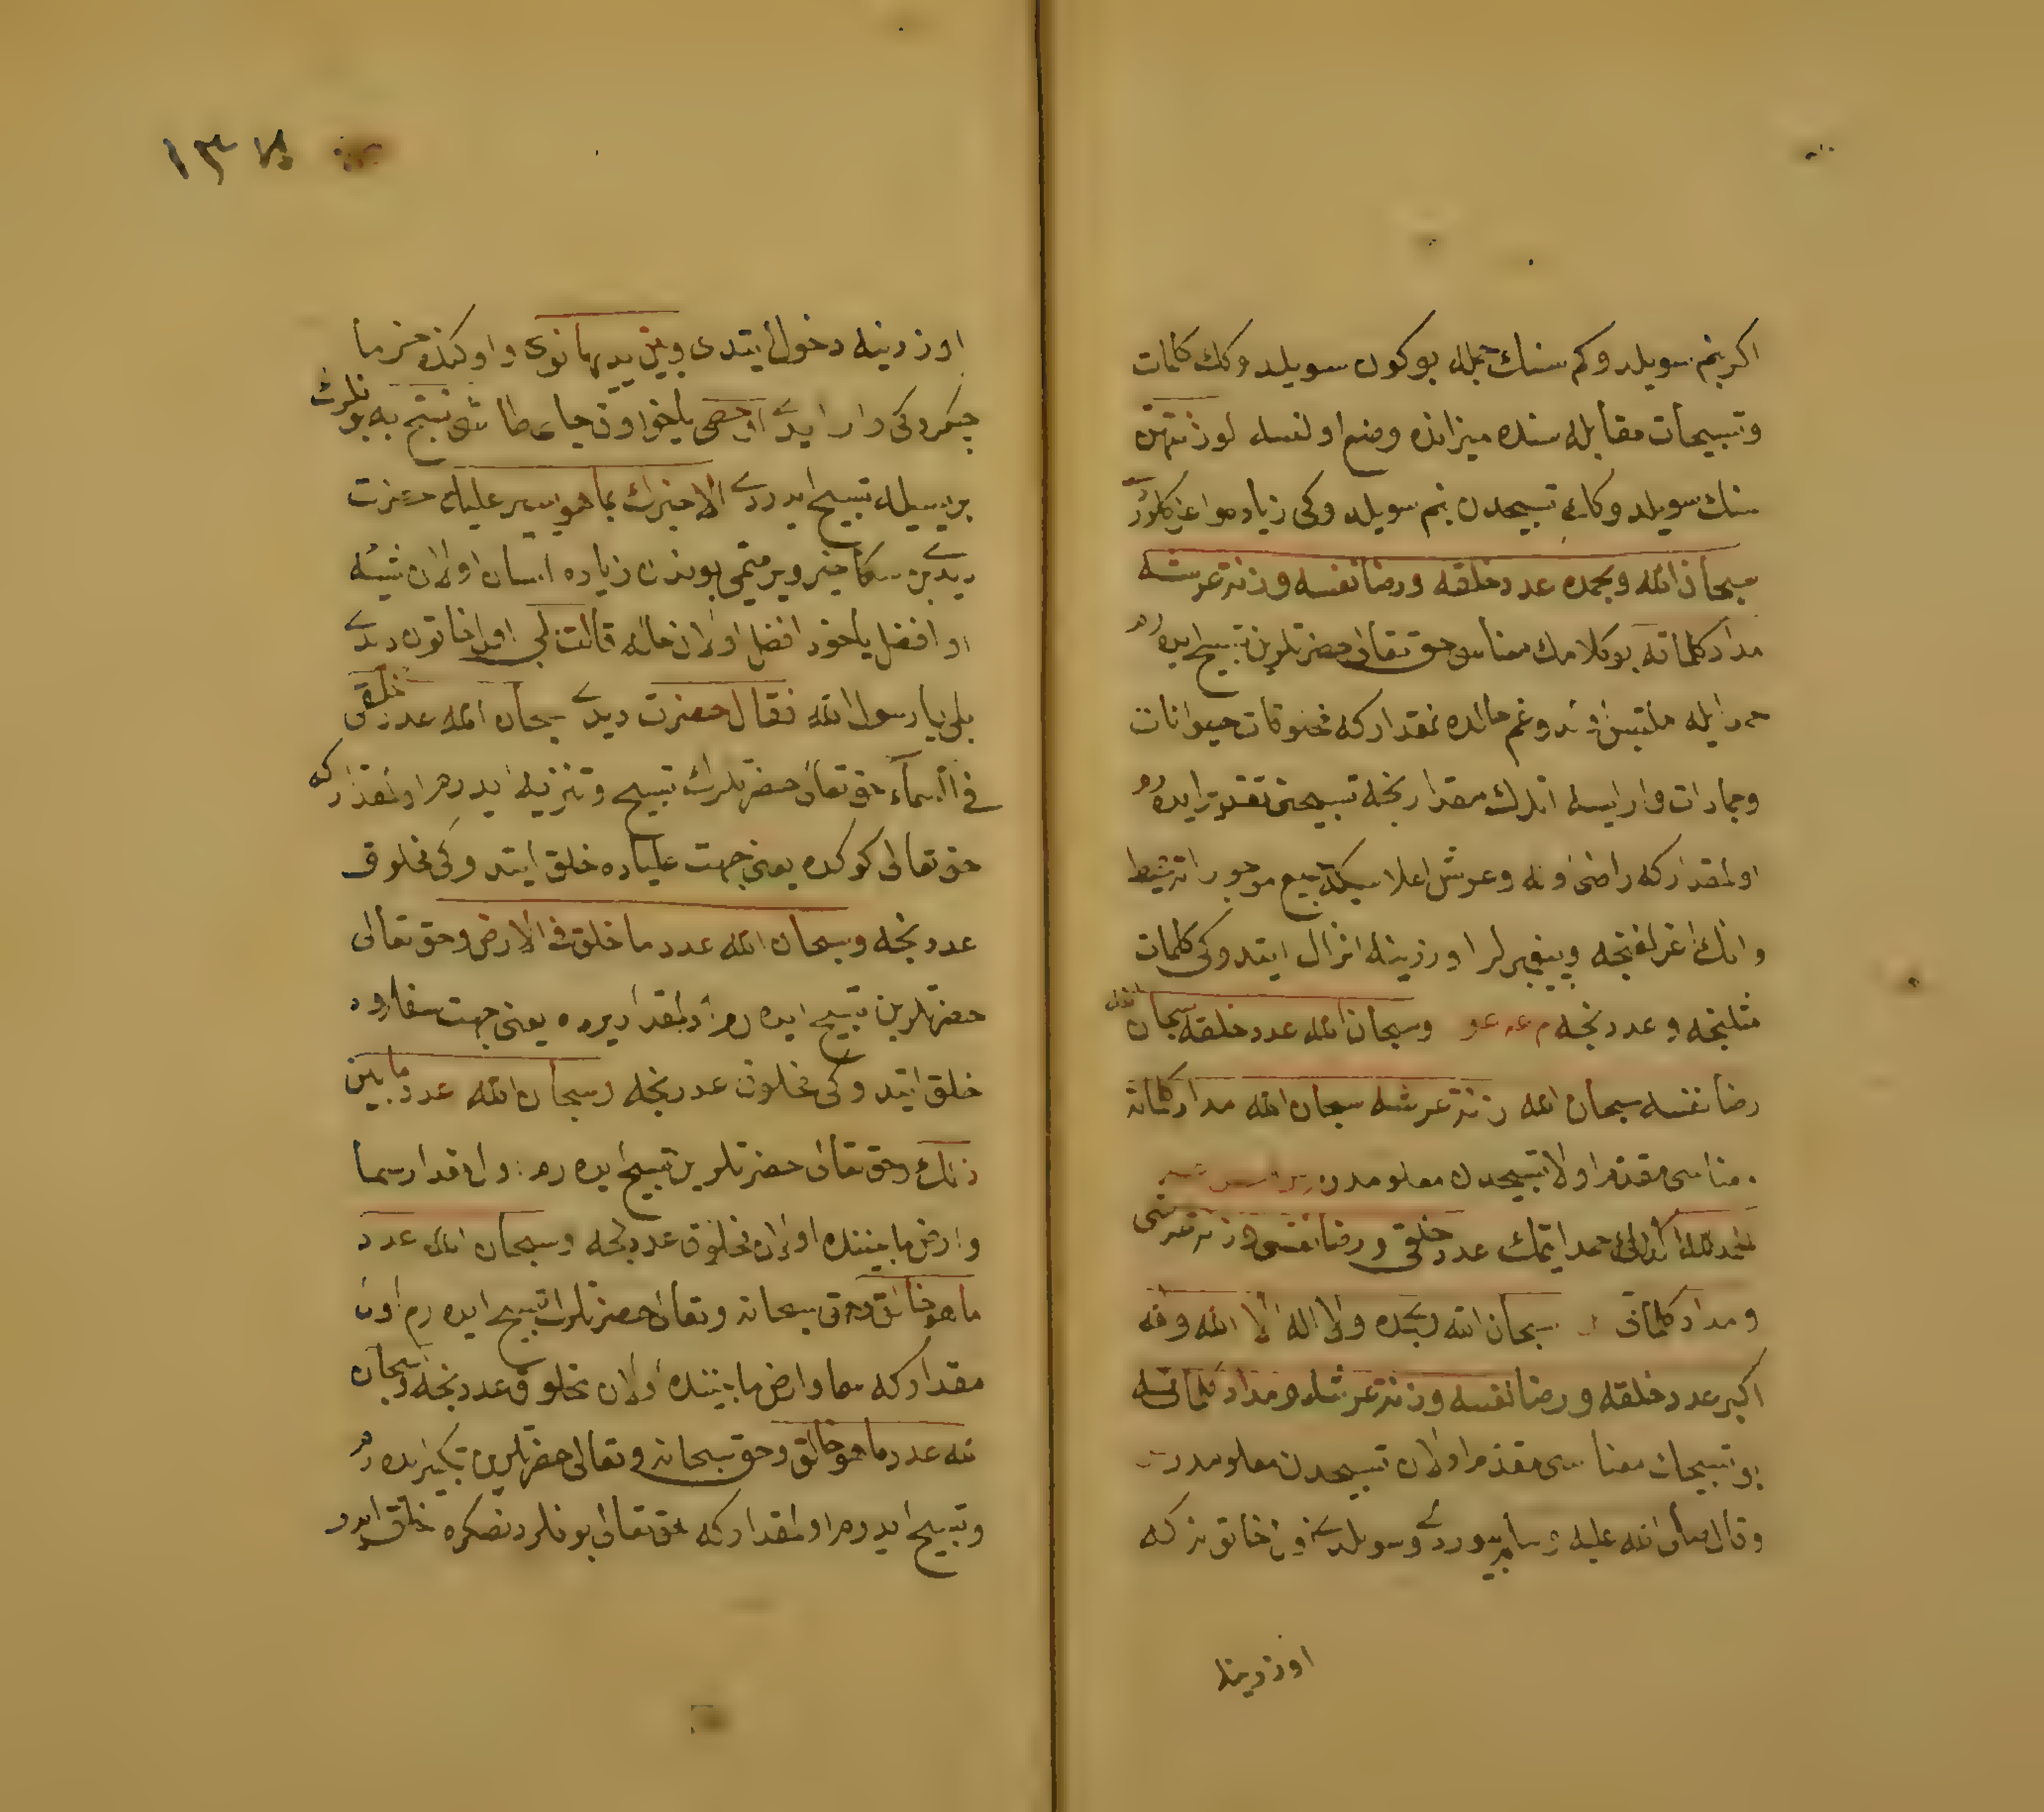 اكر بنم سويلدوكم سنك جمله بوكون سويلدوكك كلمات
وتسبيحات مقابله سنده ميزانده وضع اولنسه لوزنتهن
سنك سويلدوكك تسبيحدن بنم سويلدوكى زياده واغر كلور
سبحان الله وبحمده عدد خلقه ورضا نفسه وزنة عرشه
مداد كلماته بو كلامك معناسى حق تعالى حضرتلرين تسبيح ايدرم
حمد ايله ملتبس اولدوغم حالده اولمقدار كه مخلوقات حيوانات
وجمادات وار ايسه انلرك مقدارنجه تسبيحنى تقدير ايدرم
اولمقدار كه راضى اوله وعرش اعلا كه جميع موجوداته محيط
وانك اغرلغنجه وپيغمبرلر اوزرينه انزال ايتدوكى كلمات
مثلنجه وعددنجه م عه عو وسبحان الله عدد خلقه سبحان الله
رضا نفسه سبحان الله زنة عرشه سبحان الله مداد كلماته
معناسى مقدم اولان تسبيحدن معلومدر
الحمد لله كذلك حمد ايتمك عدد خلقى ورضا نفسى وزنة عرشى
ومداد كلماتى سبحان الله وبحمده ولا اله الا الله والله
اكبر عدد خلقه ورضا نفسه وزنة عرشه ومداد كلماته
بو تسبيحات معناسى مقدم اولان تسبيحدن معلومدر
وقال صلى الله عليه وسلم بيوردى وسويلدى اول خاتونه كه
اوزرينه
١٣٨
اوزرينه دخول ايتدى وبين يديها نوى واوكنده خرما
چكردكى وار ايدى او حصى ياخود اوفاجق طاش تسبح به بونلرك
بريسيله تسبيح ايدردى الا اخبرك بما هو ايسر عليك حضرت
ديدى بن سكا خبر ويرميمى بوندن زياده اسان اولان شيئه
او افضل ياخود افضل اولان حاله قالت بلى اول خاتون ديدى
بلى يا رسول الله فقال حضرت ديدى سبحان الله عدد ما خلق
فى السماء حق تعالى حضرتلرينى تسبيح وتنزيه ايدرم اولمقدار كه
حق تعالى كوكده يعنى جهت علياده خلق ايتدوكى مخلوق
عددنجه وسبحان الله عدد ما خلق فى الارض وحق تعالى
حضرتلرين تسبيح ايدرم اولمقدار يرده يعنى جهت سفلاده
خلق ايتدوكى مخلوق عددنجه وسبحان الله عدد ما بين
ذلك وحق تعالى حضرتلرين تسبيح ايدرم اول مقدار سما
وارض مابيننده اولان مخلوق عددنجه وسبحان الله عدد
ما هو خالق وحق سبحانه وتعالى حضرتلرين تسبيح ايدرم اول
مقدار كه سما وارض مابيننده اولان مخلوق عددنجه وسبحان
الله عدد ما هو خالق وحق سبحانه وتعالى حضرتلرين تكبير ايدرم
وتسبيح ايدرم اولمقدار كه حق تعالى بونلردنصكره خلق ايدر